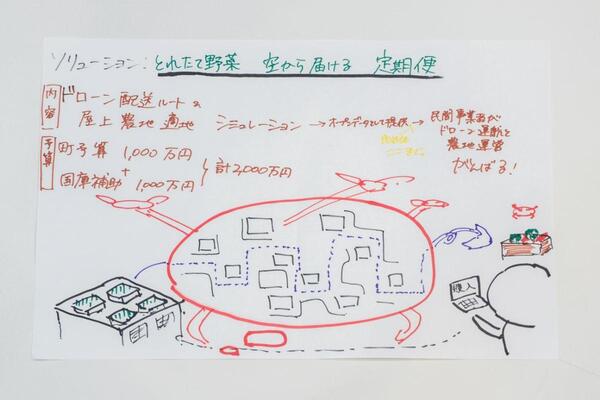 ソリューション：とれたて野菜 空から届ける 定期便
内容
ドローン配送ルート&
屋上農地適地 シミュレーション→オープンデータとして提供→民間事業者が
ドローン運航と
農地運営
がんばる!
予算
町予算 1,000万円
+
国庫補助 1,000万円
計2,000万円
購入